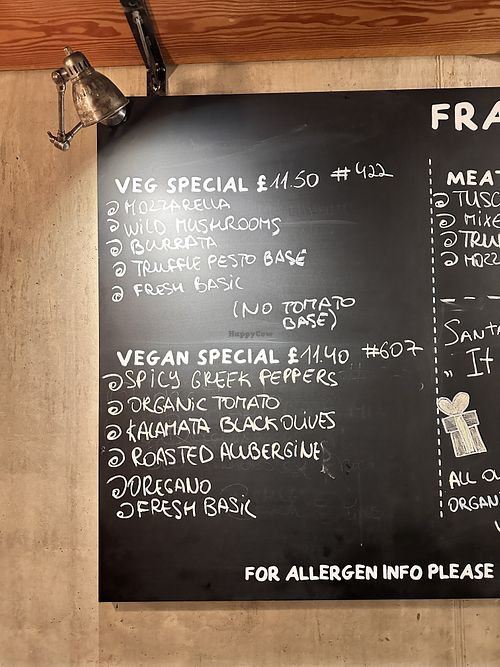 FRA
VEG SPECIAL £11.50 #422
MOZZARELLA
WILD MUSHROOMS
BURRATA
TRUFFLE PESTO BASE
FRESH BASIL
(NO TOMATO
BASE)
HappyCow
VEGAN SPECIAL £11.40 #607
SPICY GREEK PEPPERS
ORGANIC TOMATO
KALAMATA BLACK OLIVES
ROASTED AUBERGINE
OREGANO
FRESH BASIL
MEAT
TUSC
MIXE
TRU
MOZZ
SANTA
" It
ALL OU
ORGAN
FOR ALLERGEN INFO PLEASE